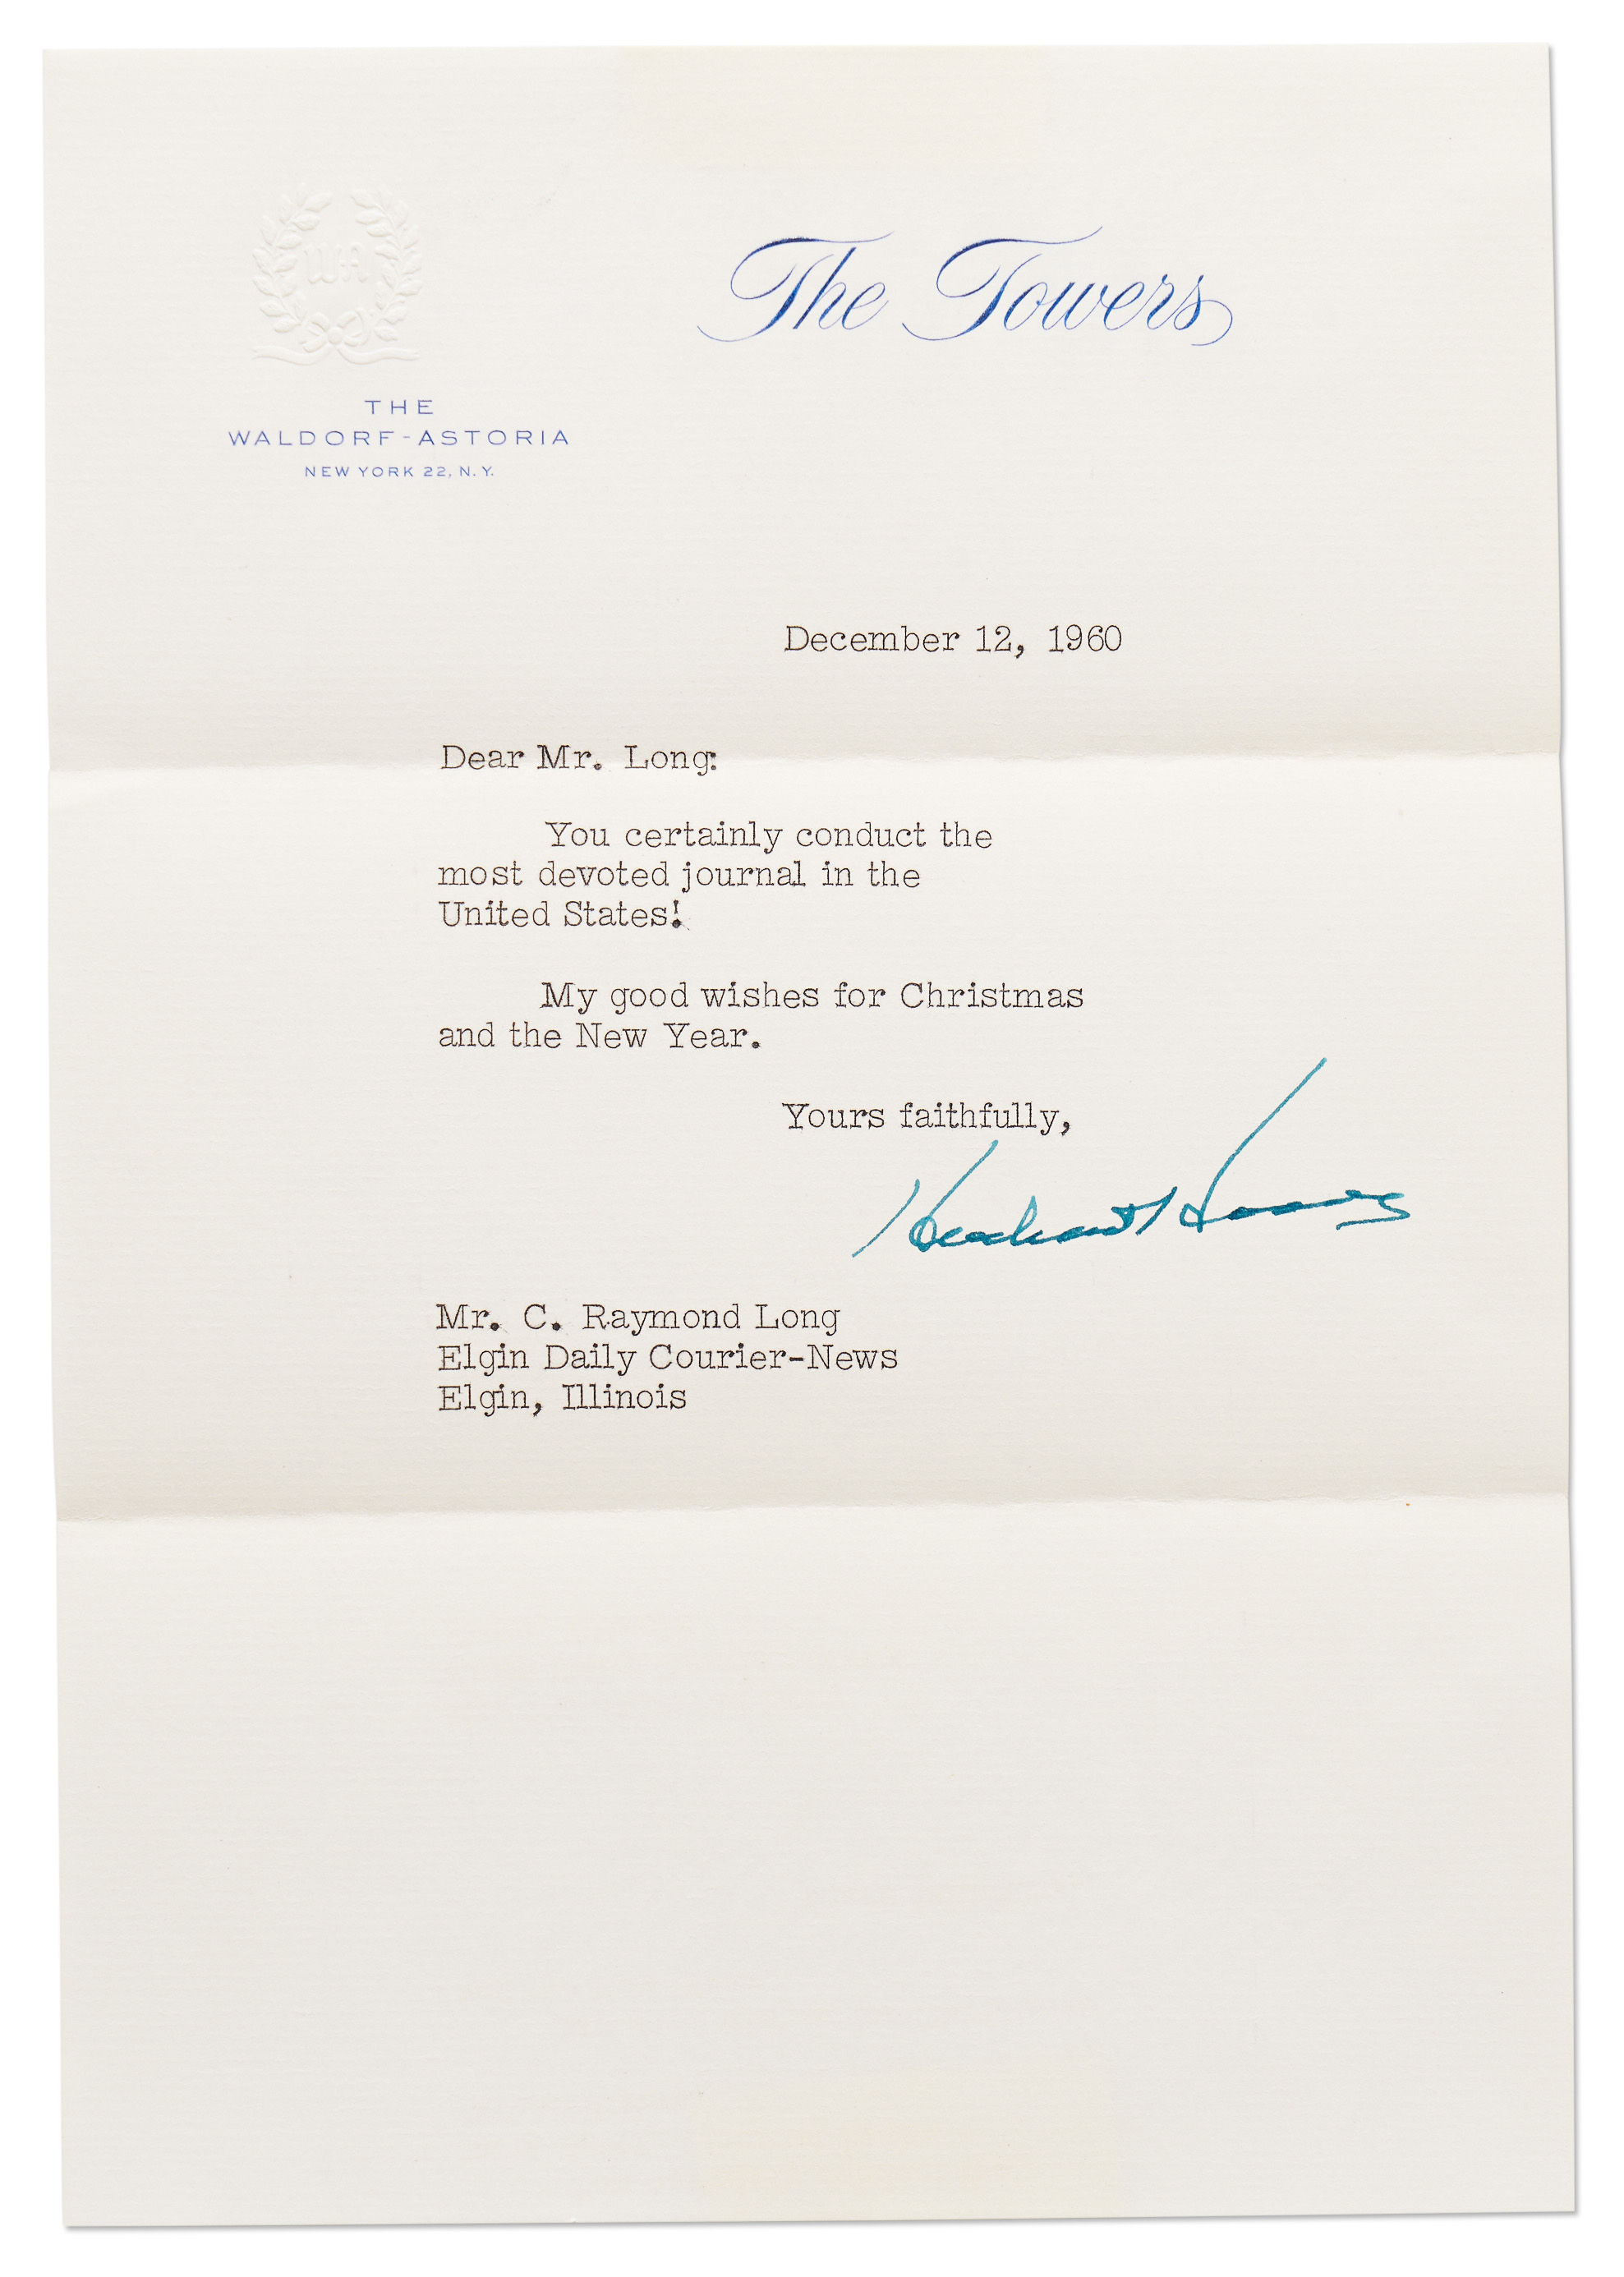 WA
The Towers
THE
WALDORF-ASTORIA
NEW YORK 22, N.Y.
December 12, 1960
Dear Mr. Long:
You certainly conduct the
most devoted journal in the
United States!
My good wishes for Christmas
and the New Year.
Yours faithfully,
Herbert Hoover
Mr. C. Raymond Long
Elgin Daily Courier-News
Elgin, Illinois